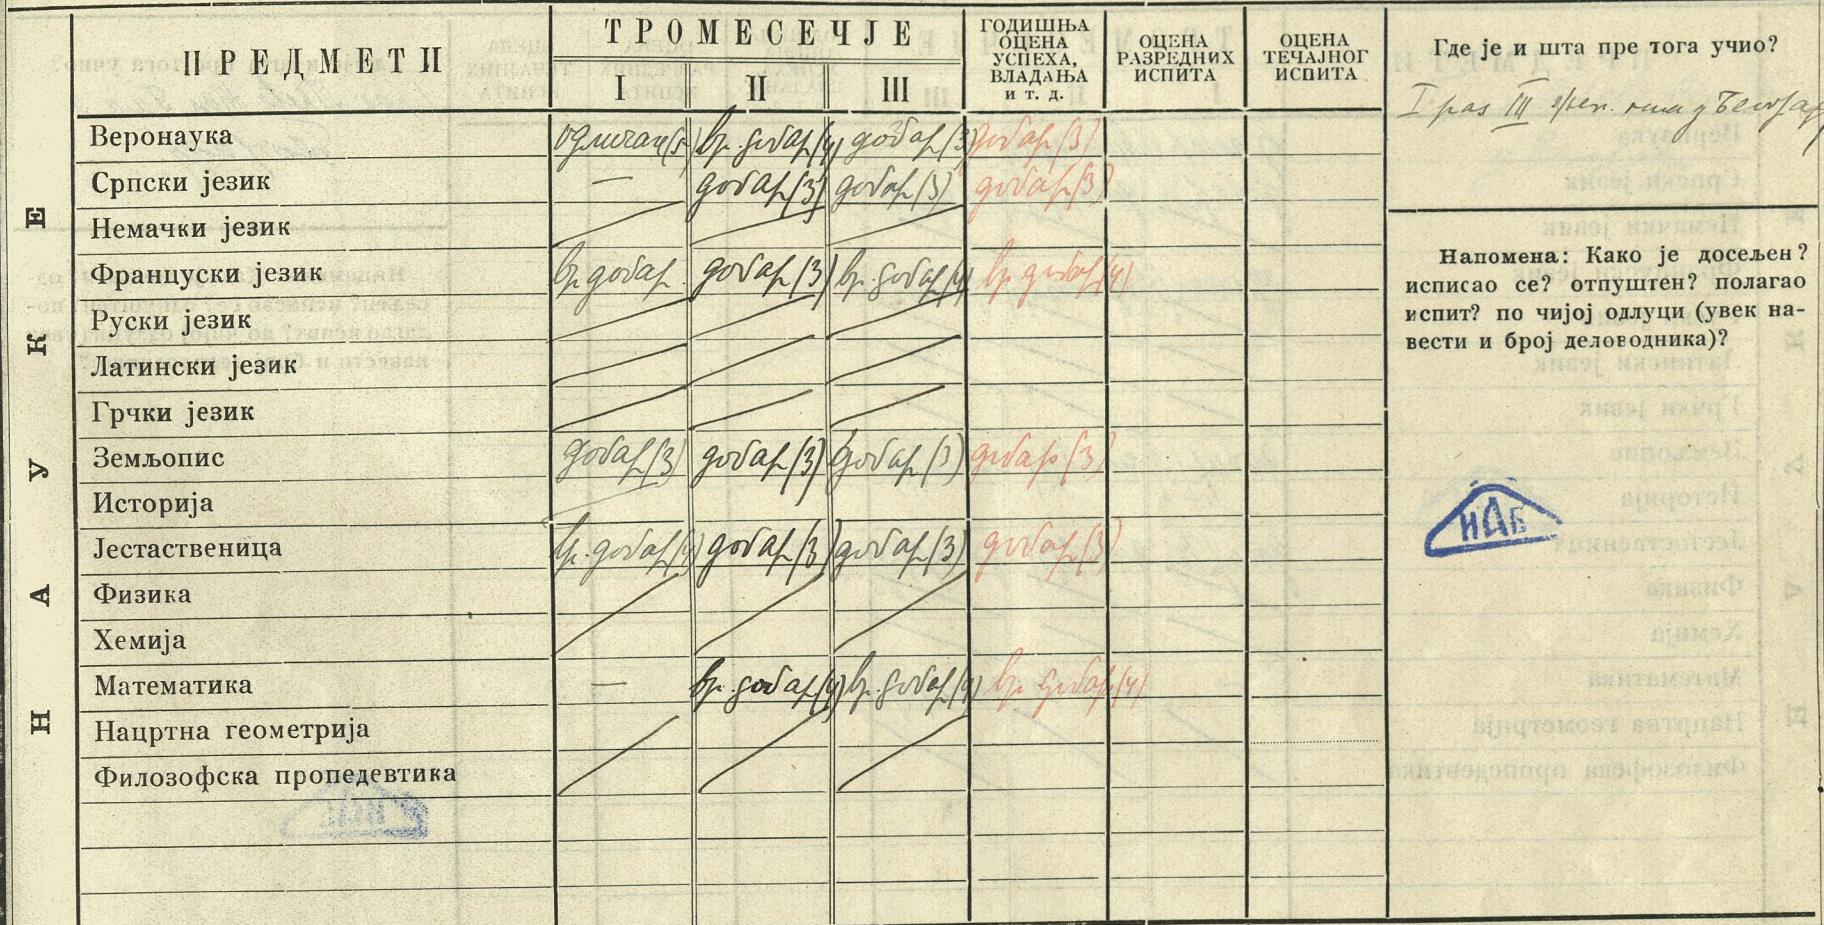 НАУКЕ
ПРЕДМЕТИ
ТРОМЕСЕЧЈЕ
I II III
ГОДИШЊА ОЦЕНА УСПЕХА, ВЛАДАЊА и т. д.
ОЦЕНА РАЗРЕДНИХ ИСПИТА
ОЦЕНА ТЕЧАЈНОГ ИСПИТА
Веронаука одличан (5) вр. добар (4) добар (3) добар (3)
Српски језик — добар (3) добар (3) добар (3)
Немачки језик
Француски језик вр. добар добар (3) вр. добар (4) вр. добар (4)
Руски језик
Латински језик
Грчки језик
Земљопис добар (3) добар (3) добар (3) добар (3)
Историја
Јестаственица вр. добар (4) добар (3) добар (3) добар (3)
Физика
Хемија
Математика — вр. добар (4) вр. добар (4) вр. добар (4)
Нацртна геометрија
Филозофска пропедевтика
Где је и шта пре тога учио?
I раз III у
Напомена: Како је досељен?
исписао се? отпуштен? полагао
испит? по чијој одлуци (увек на-
вести и број деловодника)?
ИАБ